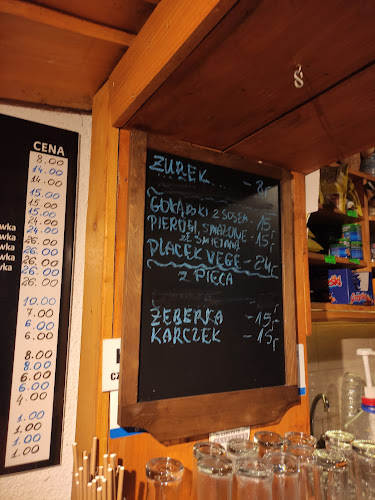 CENA
8.00
14.00
14.00
15.00
15.00
15.00
24.00
24.00
26.00
26.00
26.00
26.00
10.00
7.00
6.00
6.00
8.00
8.00
6.00
6.00
4.00
1.00
1.00
1.00
1.00
ŻUREK... - 8,-
GOŁĄBKI Z SOSEM - 15,-
PIEROGI SMAŻONE - 15,-
ZE ŚMIETANĄ
PLACEK VEGE - 24,-
Z PIECA
ŻEBERKA - 15,-
KARCZEK - 15,-